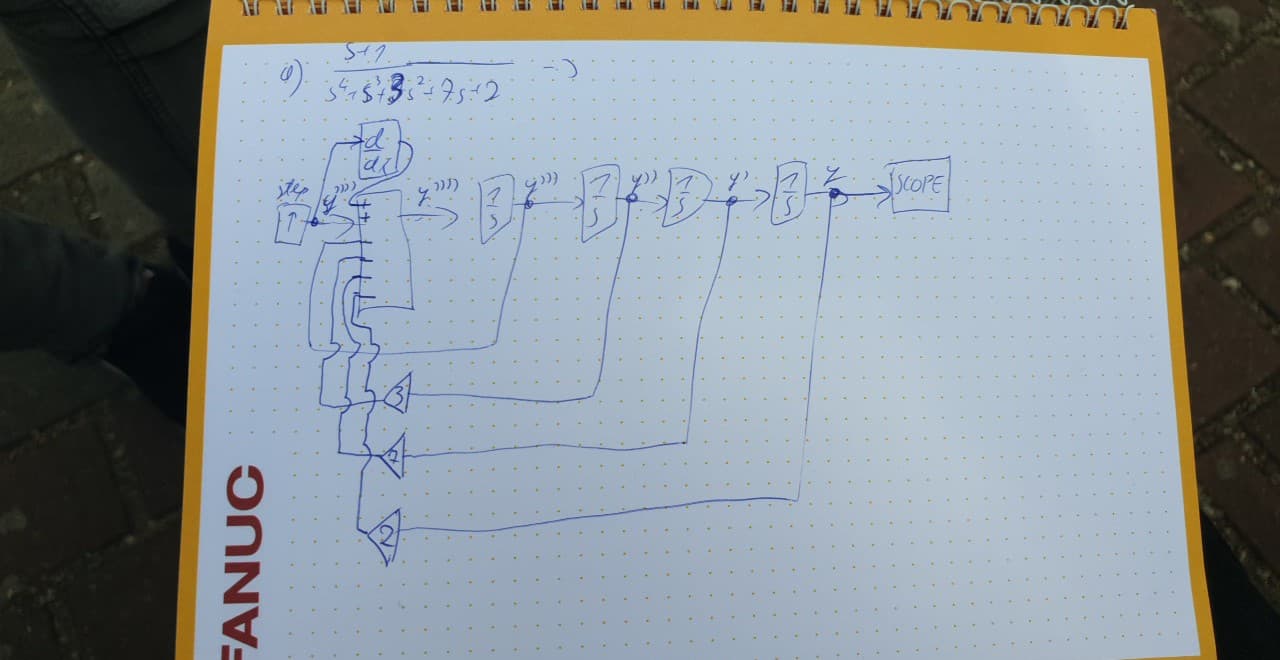 a) s+1 →
s⁴+s³+3s²+7s+2
d
dt
step
1
y''''
+
+
y''''
1
s
y'''
1
s
y''
1
s
y'
1
s
y
SCOPE
3
7
2
FANUC